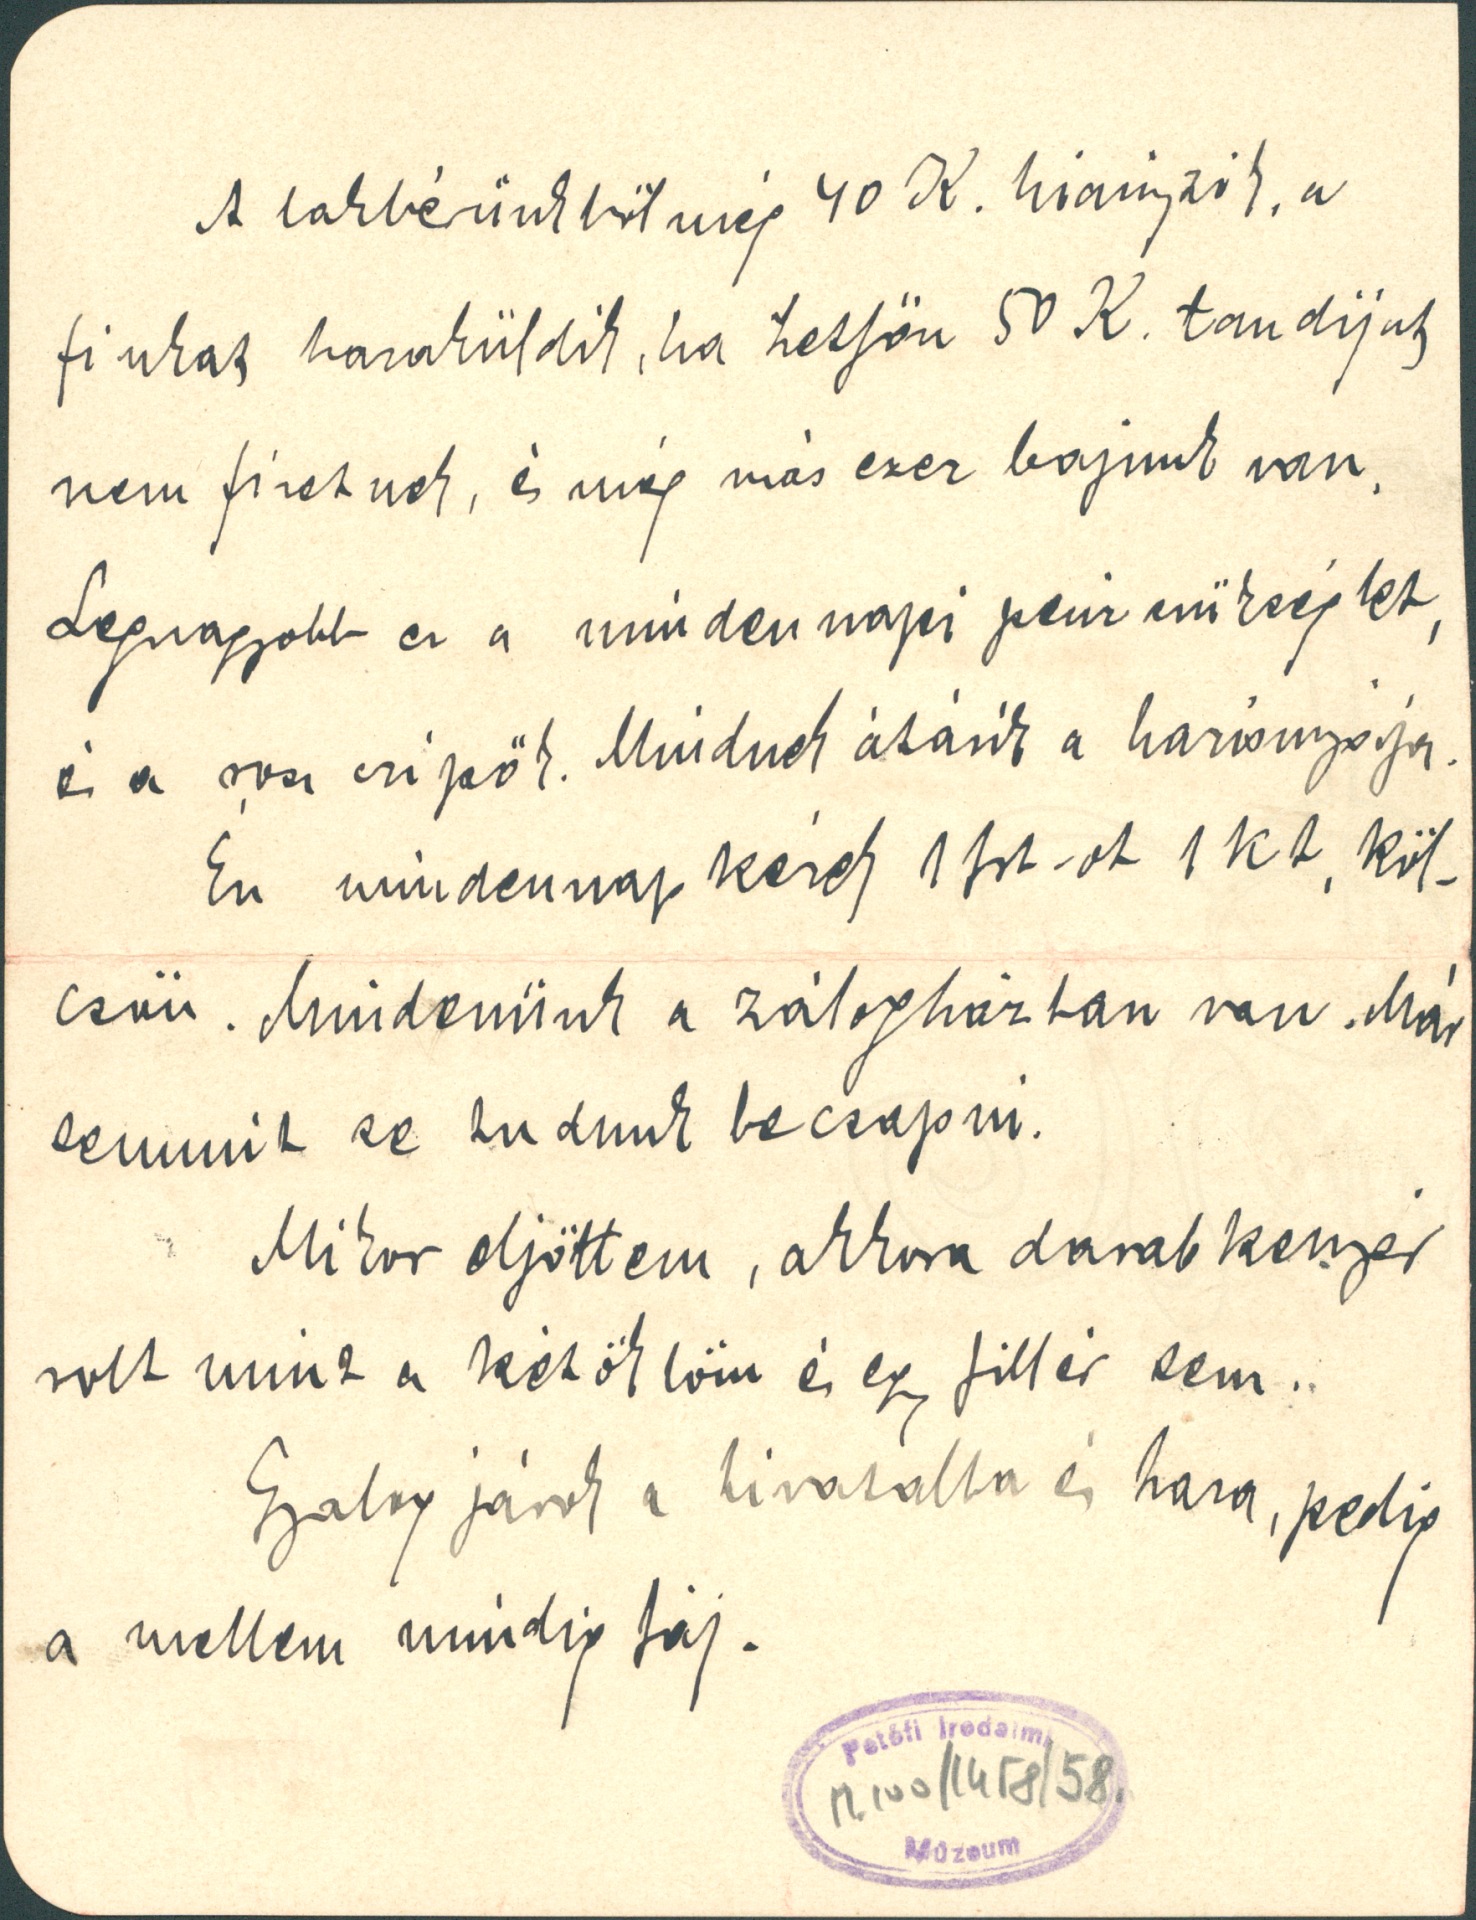 A lakbérünkből még 40 K. hiányzik, a
fiukat hazaküldik, ha hetfőn 50 K. tandijat
nem fizetnek, és még más ezer bajunk van.
Legnagyobb ez a mindennapi pénz szükséglet,
és a rosz czipők. Mindnek átázik a harisnyája.
Én mindennap kérek 1 frt-ot 1 Kt, köl-
csön. Mindenünk a zálogházban van. Már
semmit se tudunk becsapni.
Mikor eljöttem, akkora darab kenyér
volt mint a két öklöm és egy fillér sem.
Gyalog járok a hivatalba és haza, pedig
a mellem mindig fáj.
Petőfi Irodalmi
M.100/1458/58.
Múzeum